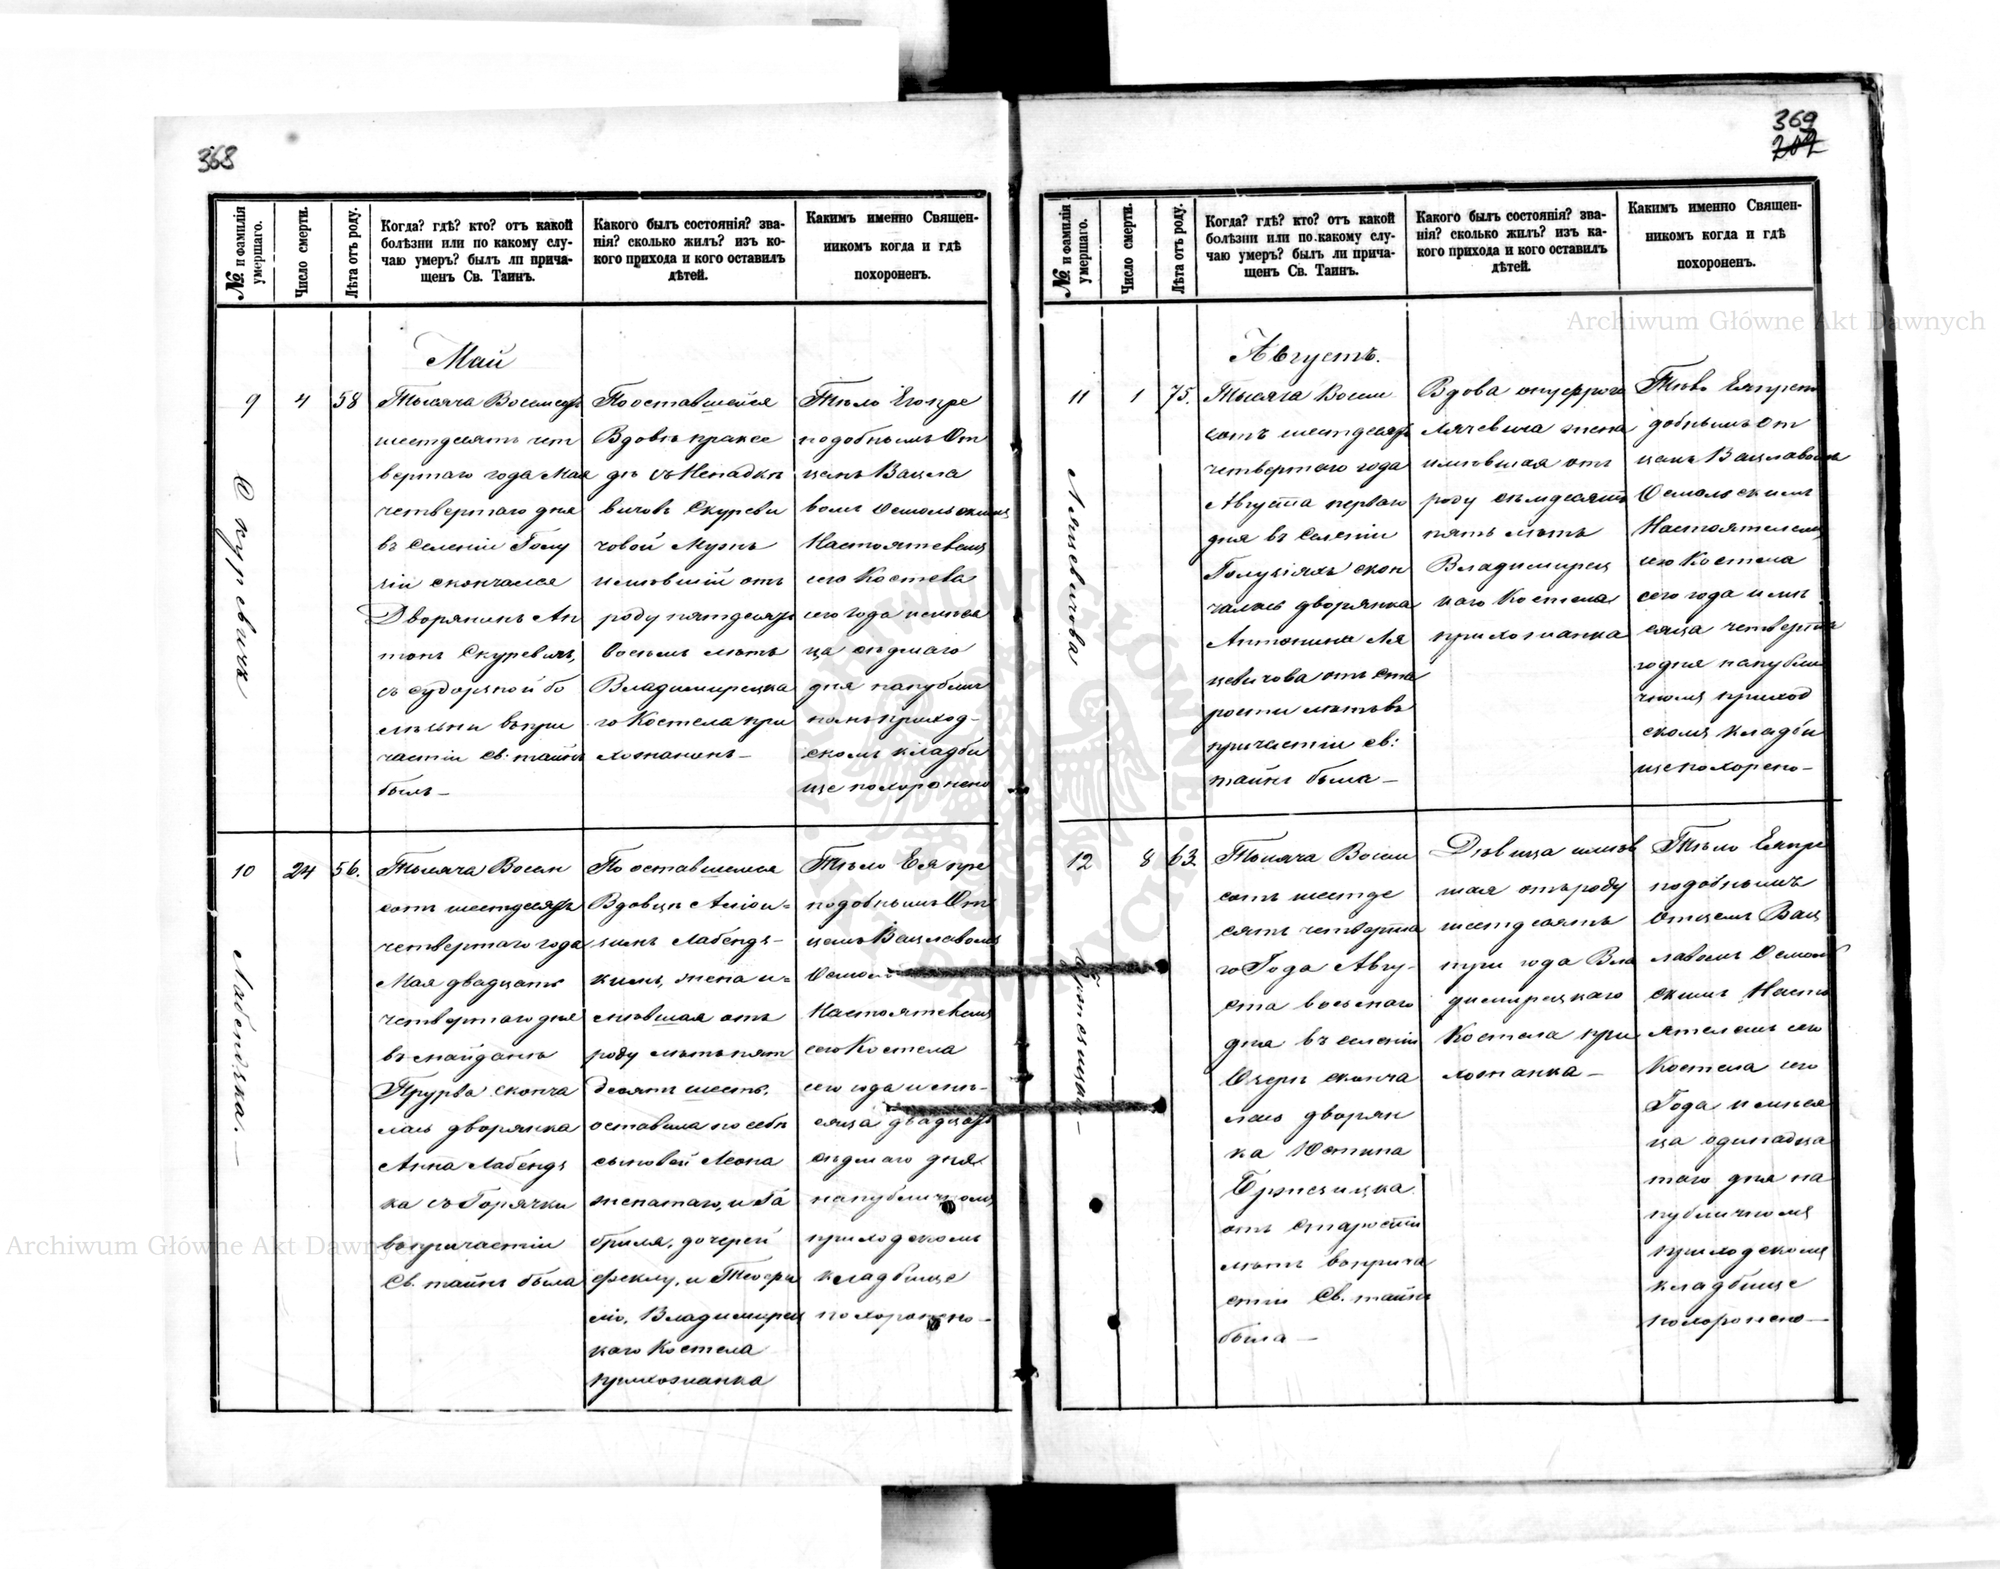 368
№ и фамилія умершаго.
Число смерти.
Лѣта отъ роду.
Когда? гдѣ? кто? отъ какой
болѣзни или по какому слу-
чаю умеръ? былъ ли прича-
щенъ Св. Таинъ.
Какого былъ состоянія? зва-
нія? сколько жилъ? изъ ко-
кого прихода и кого оставилъ
дѣтей.
Какимъ именно Священ-
никомъ когда и гдѣ
похороненъ.
Май
9
4
58
Скуревичъ
Тысяча Восемсотъ
шестдесятъ чет
вертаго года Мая
четвертаго дня
въ Селеніи Голу
зіи скончался
Дворянинъ Ан
тонъ Скуревичъ,
съ судоржной бо
лѣзни въ при
частіи Св: тайнъ
былъ—
По оставшейся
Вдовѣ
Скуреви
човой Мужъ
имѣвшій отъ
роду пятдесятъ
восемь лѣтъ
Владимирецка
го Костела при
хожанинъ—
Тѣло Его пре
подобнымъ От
цемъ Вацла
вомъ Осмольскимъ
Настоятелемъ
сего Костела
сего года и мѣся
ца седмаго
дня на публич
номъ приход-
скомъ кладби
ще похоронено
10
24
56.
Лабендзка.—
Тысяча Восем
сотъ шестдесятъ
четвертаго года
Мая двадцать
четвертаго дня
въ майданѣ
Прурва сконча
лась дворянка
Анна Лабендз
ка съ Горячки
въ причастіи
Св. тайнъ была
По оставшемся
Вдовцѣ
Лабендз-
кимъ, жена и-
мѣвшая отъ
роду лѣтъ пят
десятъ шесть,
оставила по себѣ
сыновей Леона
женатаго, и Га
бріля, дочерей
Феклу, и Теофи
лію, Владимирец
каго Костела
прихожанка
Тѣло Ея пре
подобнымъ От
цемъ Вацлавомъ
Осмол
Настоятелемъ
сего Костела
сего года и мѣ-
сяца двадцать
седмаго дня
на публичномъ
приходскомъ
кладбище
похоронено—
369
202
№ и фамилія умершаго.
Число смерти.
Лѣта отъ роду.
Когда? гдѣ? кто? отъ какой
болѣзни или по какому слу-
чаю умеръ? былъ ли прича-
щенъ Св. Таинъ.
Какого былъ состоянія? зва-
нія? сколько жилъ? изъ ка-
кого прихода и кого оставилъ
дѣтей.
Какимъ именно Священ-
никомъ когда и гдѣ
похороненъ.
Августъ.
11
1
75.
Ляцевичова
Тысяча Восем
сотъ шестдесятъ
четвертаго года
Августа перваго
дня въ Селеніи
Голузіяхъ скон
чалась дворянка
Антонина Ля
цевичова отъ ста
рости лѣтъ въ
причастіи св:
тайнъ была—
Вдова
Ляцевича жена
имѣвшая отъ
роду семдесятъ
пять лѣтъ
Владимирец
каго Костела
прихожанка
Тѣло Ея препо
добнымъ От
цемъ Вацлавомъ
Осмольскимъ
Настоятелемъ
сего Костела
сего года и мѣ
сяца четверта
го дня на публи
чномъ приход
скомъ кладби
ще похорено—
12
8
63.
Тысяча Восем
сотъ шестде
сятъ четверта
го Года Авгу-
ста восьмаго
дня въ селеніи
Озеръ сконча
лась дворян
ка Юстина
Бржезицка
отъ старости
лѣтъ въ прича
стіи Св. тайнъ
была—
Дѣвица имѣв
шая отъ роду
шестдесятъ
три года Вла
димирецкаго
Костела при
хожанка—
Тѣло Ея пре
подобнымъ
Отцемъ Вац
лавомъ Осмоль
скимъ Насто
ятелемъ сего
Костела сего
Года и мѣся
ца одинадца
таго дня на
публичномъ
приходскомъ
кладбище
похоронено—
Archiwum Główne Akt Dawnych
Archiwum Główne Akt Dawnych
ARCHIWUM GŁÓWNE AKT DAWNYCH